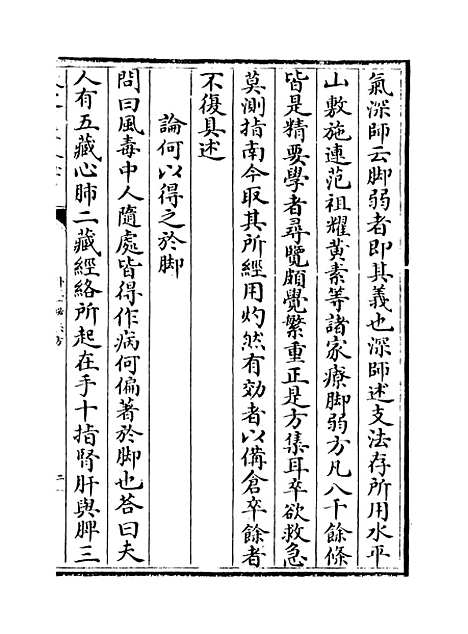 氣深師云脚弱者即其義也深師述支法存所用水平
山敷施連范祖耀黄素等諸家療脚弱方凡八十餘條
皆是精要學者尋覽頗覺繁重正是方集耳卒欲救急
莫測指南今取其所經用灼然有効者以備倉卒餘者
不復具述
論何以得之於脚
問曰風毒中人隨處皆得作病何偏著於脚也荅曰夫
人有五藏心肺二藏經絡所起在手十指腎肝與脾三